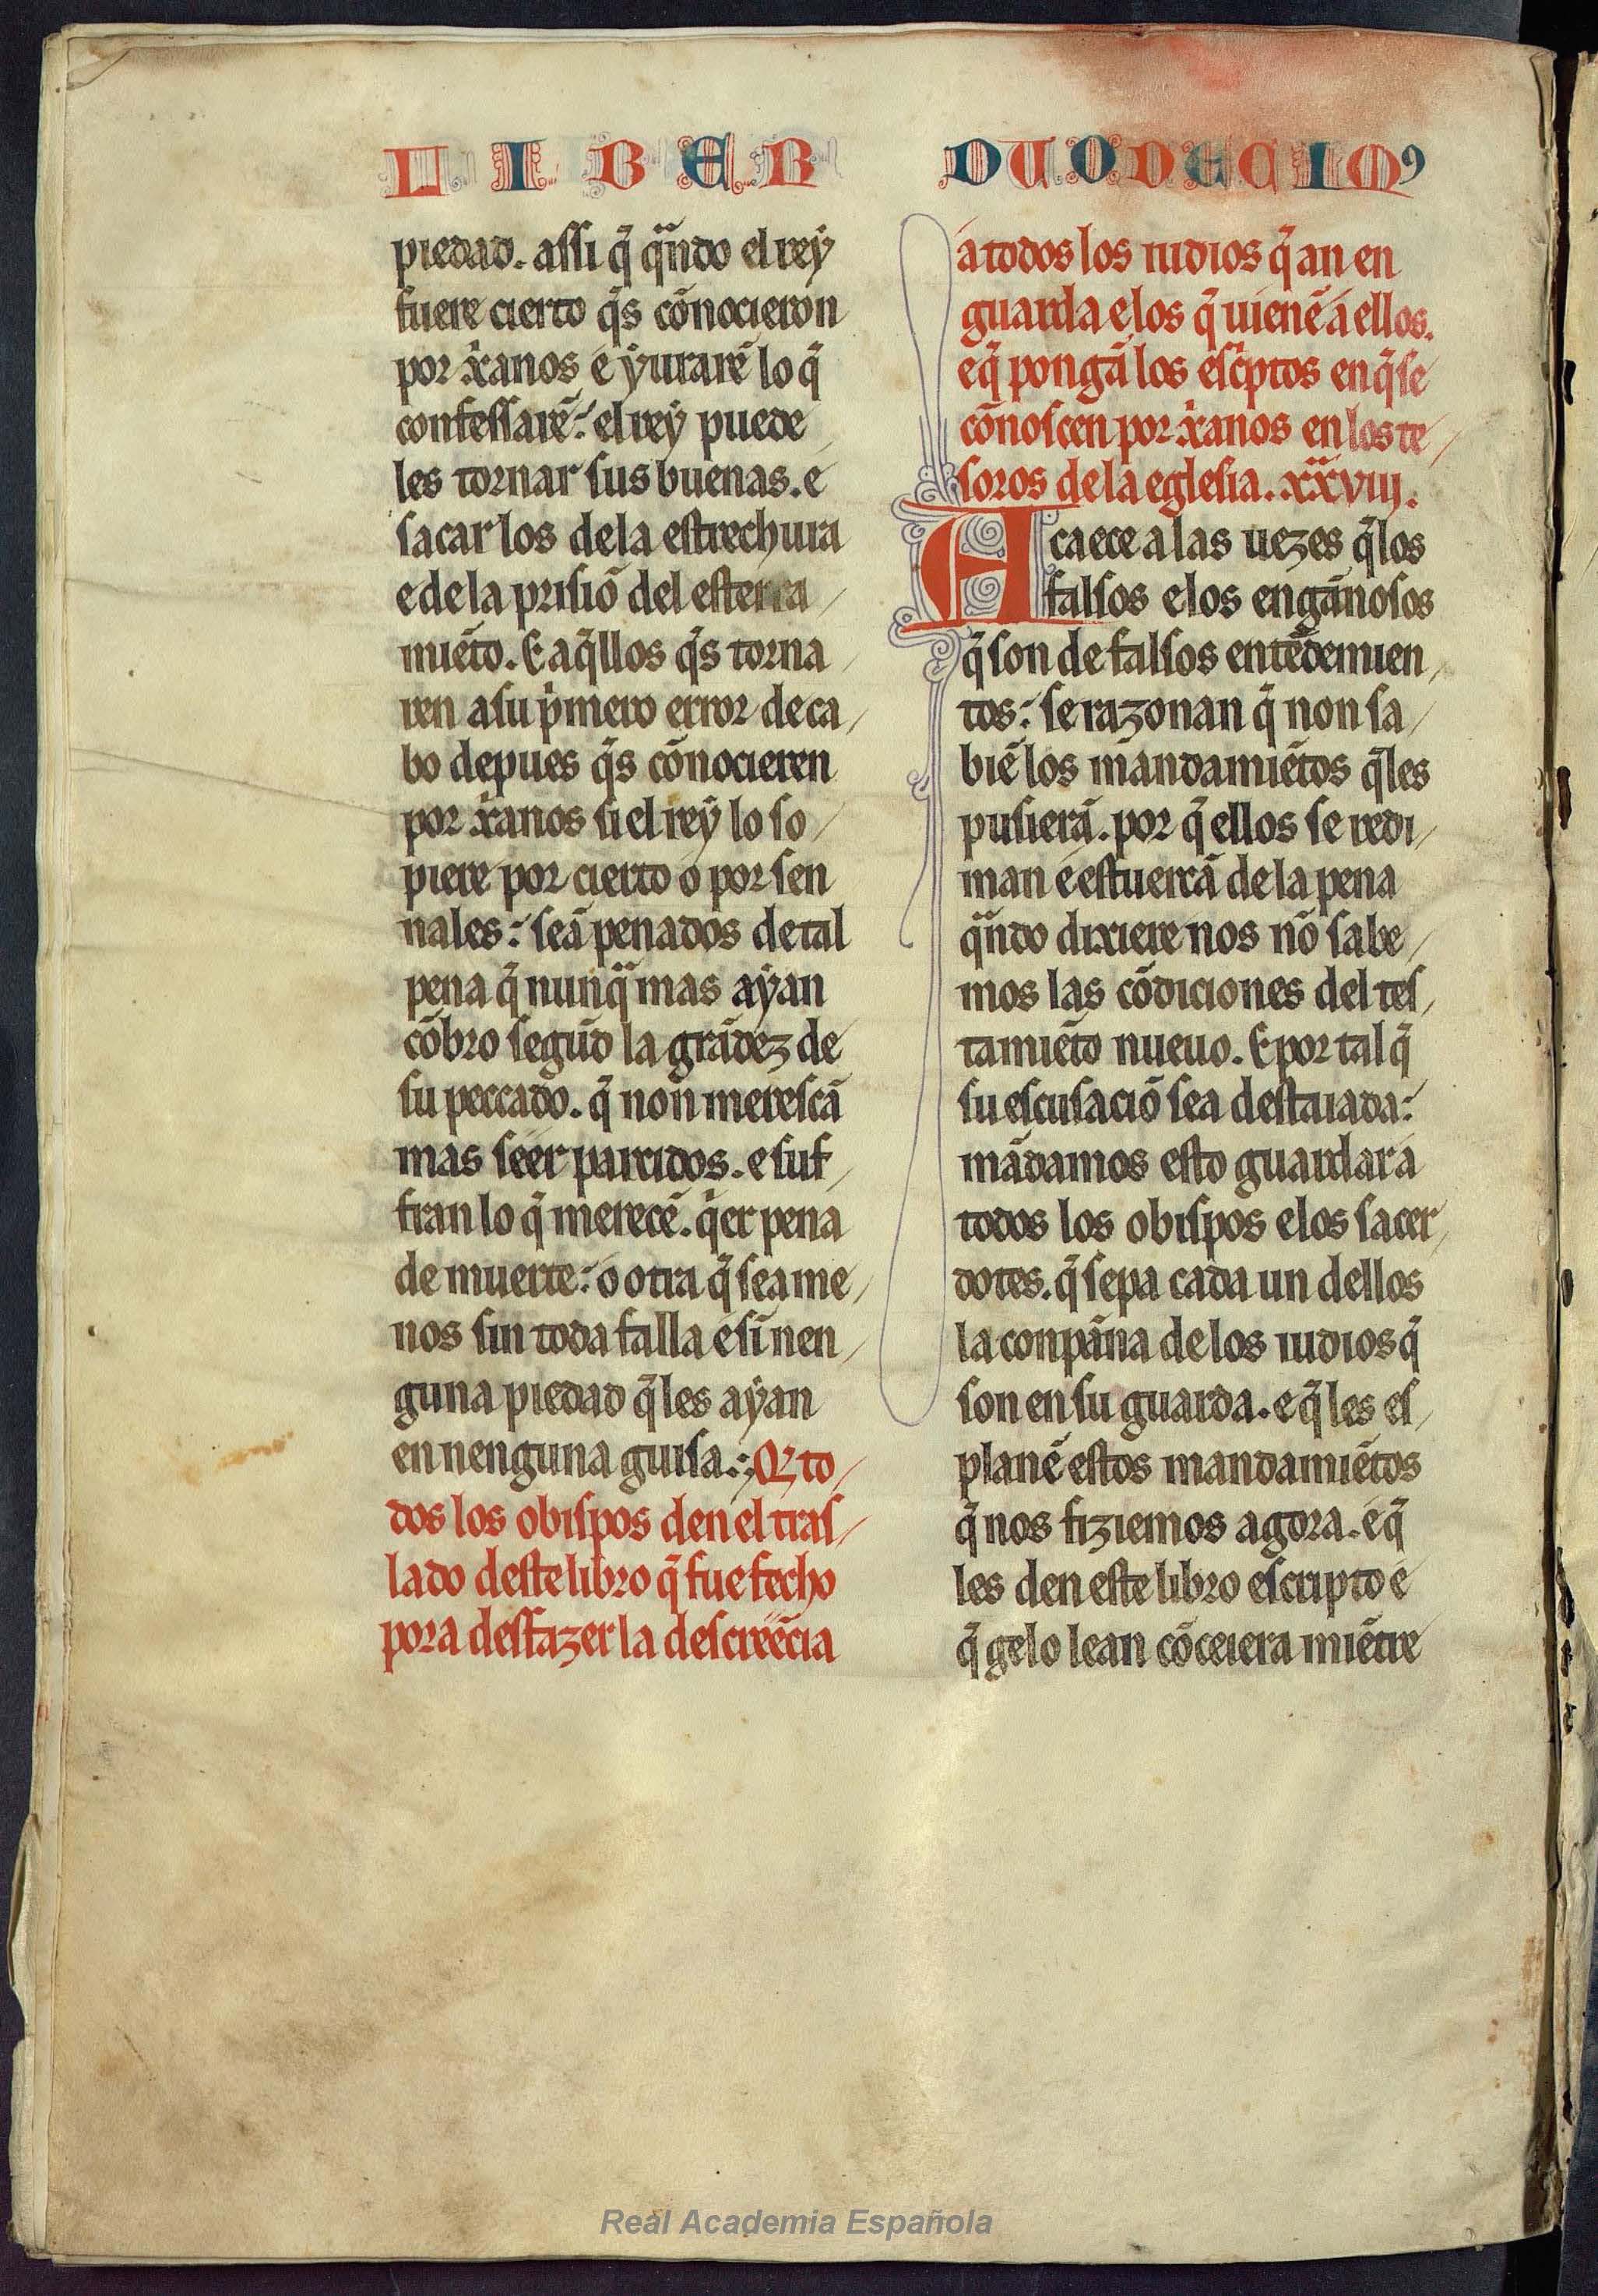 LIBER
piedad. assi q̃ qũndo el rey
fuere cierto q̃s cõnocieron
por x̃anos e yurarẽ lo q̃
confessarẽ: el rey puede
les tornar sus buenas. e
sacar los de la estrechura
e de la prisiõ del esterra
miẽto. E aq̃llos q̃s torna
ren a su p̍mero error de ca
bo depues q̃s cõnocieren
por x̃anos si el rey lo so
piere por cierto o por sen
nales: seã penados de tal
pena q̃ nunq̃ mas ayan
cõbro segũd la grãdez de
su peccado. q̃ non merescã
mas seer parcidos. e suf
fran lo q̃ merecẽ. q̍er pena
de muerte: o otra q̃ sea me
nos sin toda falla e sĩ nen
guna piedad q̃ les ayan
en nenguna guisa. Q̃ to
dos los obispos den el tras
lado deste libro q̃ fue fecho
pora desfazer la descreẽcia
DUODECIMꝰ
a todos los iudios q̃ an en
guarda e los q̃ uienẽ a ellos.
e q̃ pongã los esc̍ptos en q̃ se
cõnoscen por x̃anos en los te
soros de la eglesia. xxviij.
Acaece a las uezes q̃ los
falsos e los engãnosos
q̃ son de falsos entẽdemien
tos: se razonan q̃ non sa
biẽ los mandamiẽtos q̃ les
pusierã. por q̃ ellos se redi
man e estuerçã de la pena
qũndo dixiere nos nõ sabe
mos las cõdiciones del tes
tamiẽto nueuo. E por tal q̃
su escusaciõ sea destaiada:
mãdamos esto guardar a
todos los obispos e los sacer
dotes. q̃ sepa cada un dellos
la conpãna de los iudios q̃
son en su guarda. e q̃ les es
planẽ estos mandamiẽtos
q̃ nos fiziemos agora. e q̃
les den este libro escripto e
q̃ ge lo lean cõceiera miẽtre
Real Academia Española